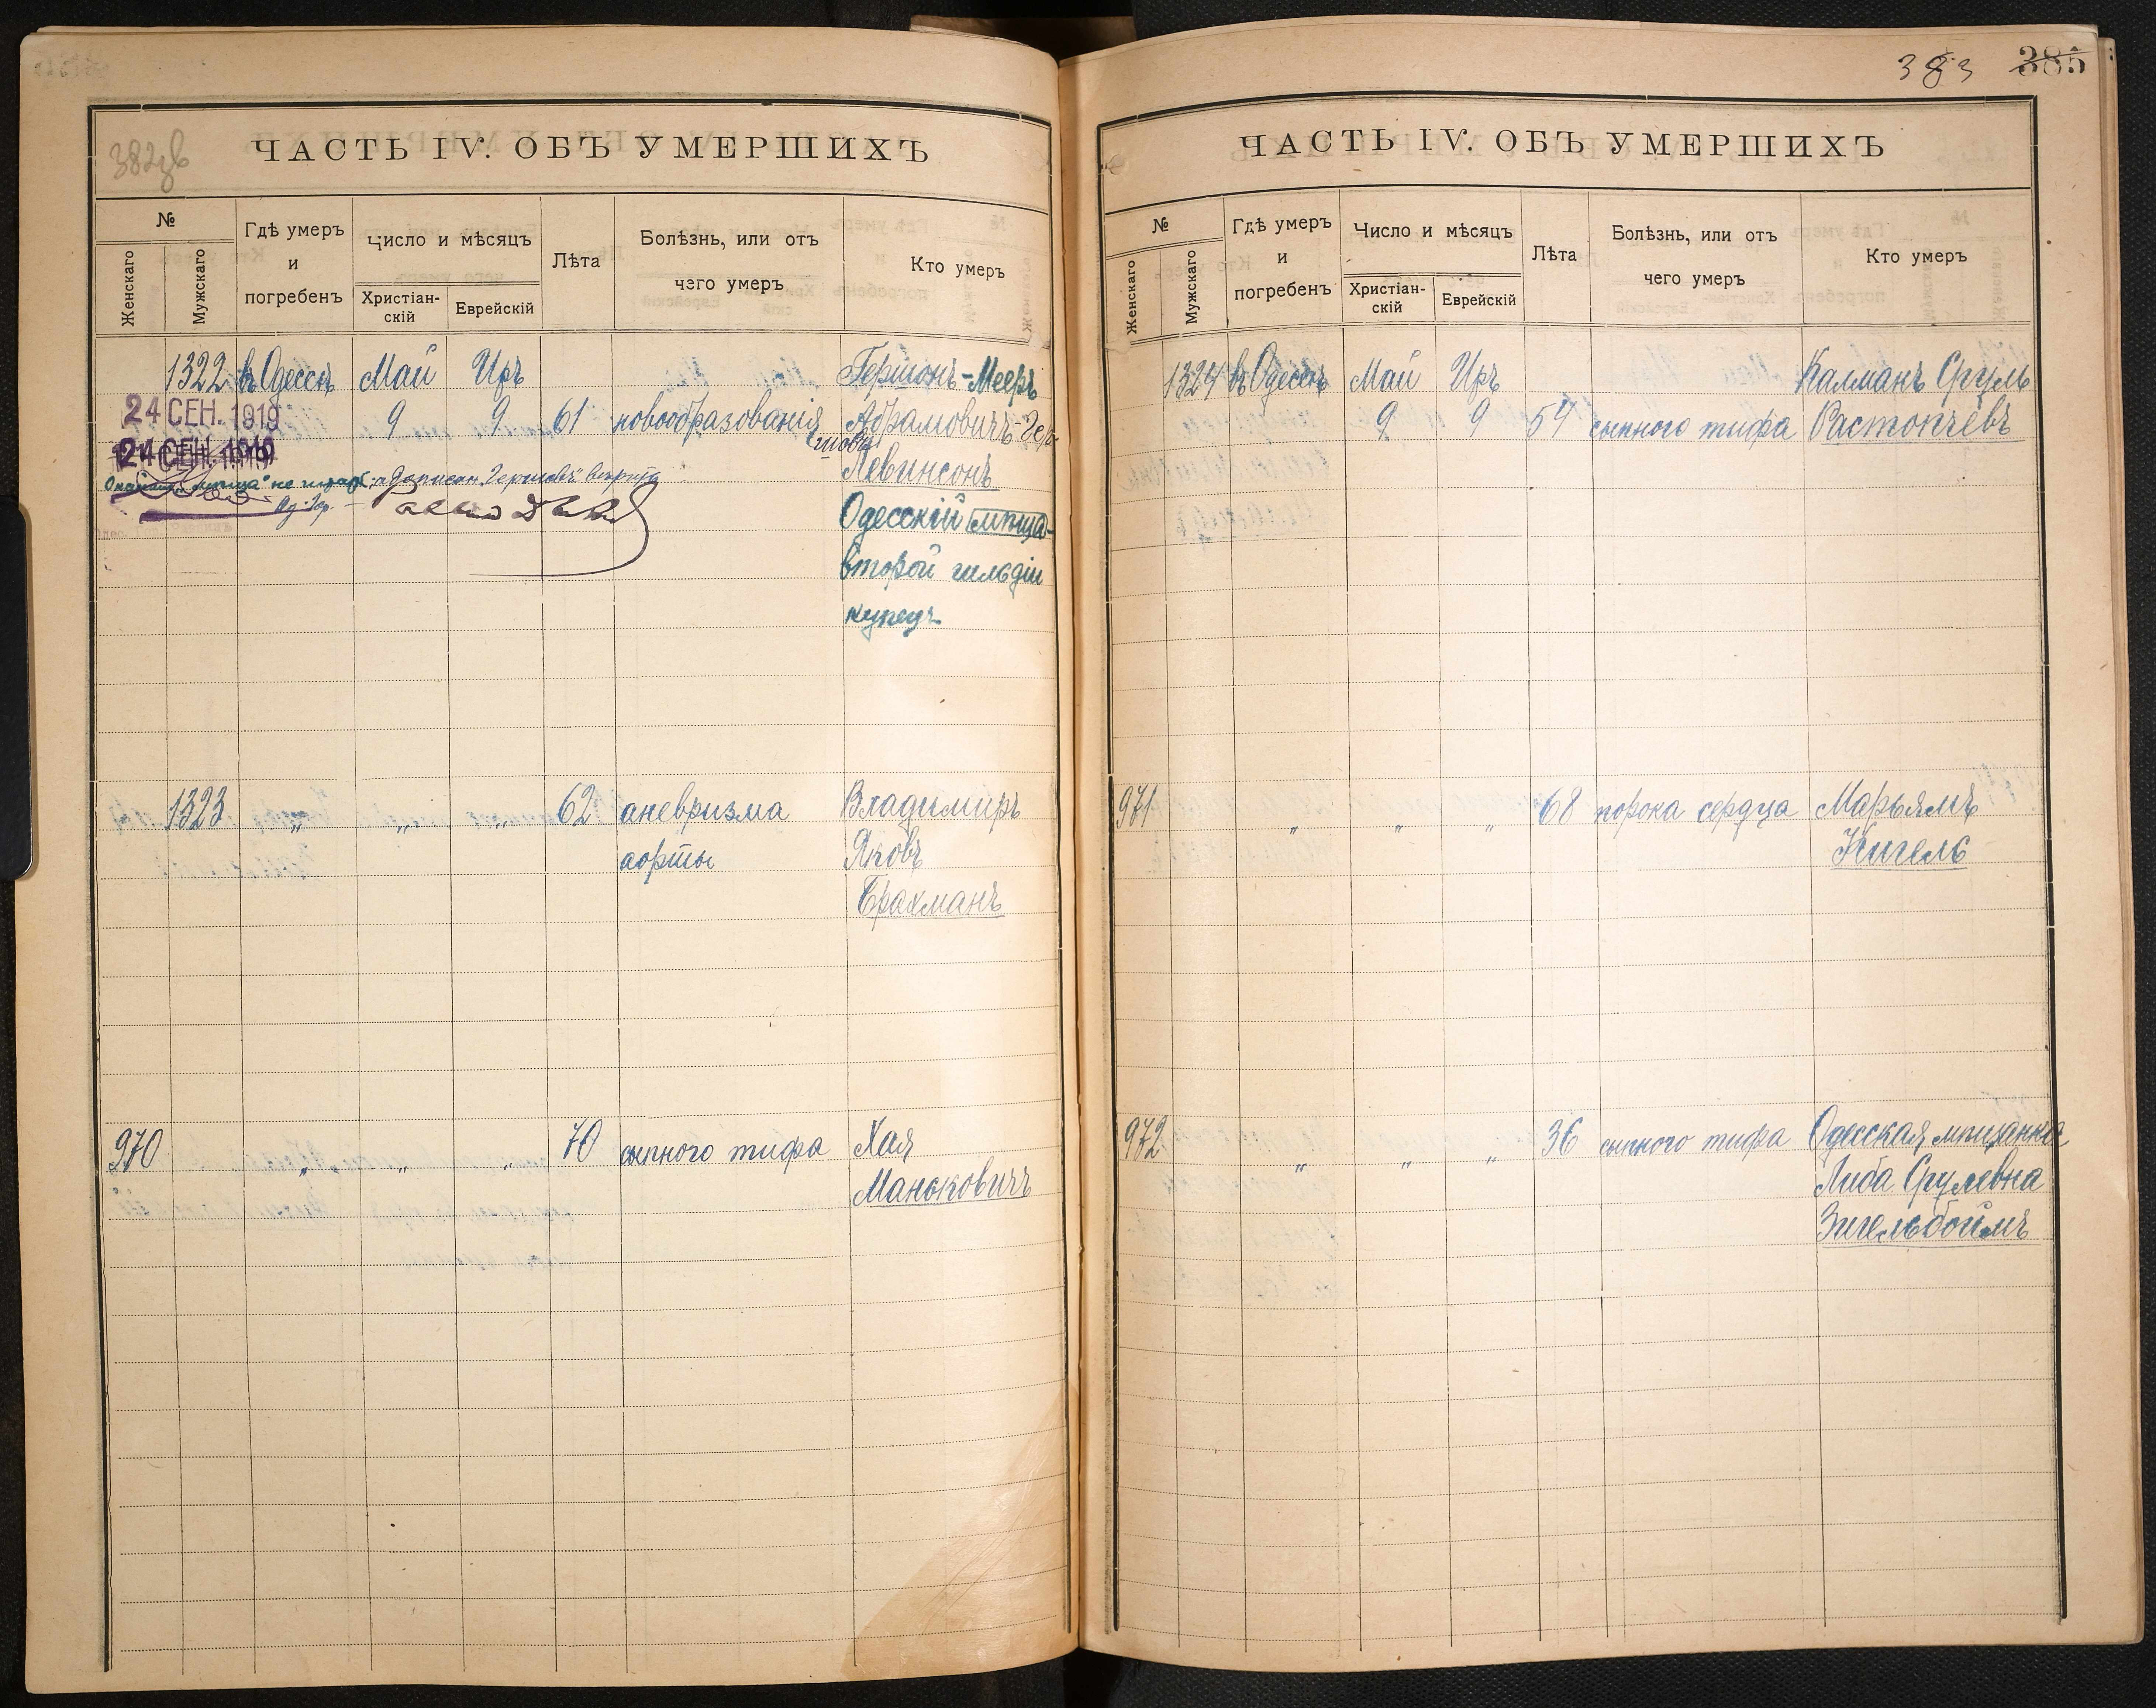 382об
ЧАСТЬ IV. ОБЪ УМЕРШИХЪ
№
Женскаго
Мужскаго
Гдѣ умеръ
и
погребенъ
Число и мѣсяцъ
Христіан-
скій
Еврейскій
Лѣта
Болѣзнь, или отъ
чего умеръ
Кто умеръ
1322 въ Одессѣ Май Иръ Гершонъ-Мееръ
24 СЕН. 1919
9 9 61 новообразованія Абрамовичъ-Гер-
шовъ
24 СЕН. 1919
Левинсонъ
Одесскій мѣща-
второй гильдіи
купецъ
1323 " " " 62 аневризма Владимиръ
аорты Яковъ
Брахманъ
970 " " " 70 сыпного тифа Хая
Маньковичъ
383 385
ЧАСТЬ IV. ОБЪ УМЕРШИХЪ
№
Женскаго
Мужскаго
Гдѣ умеръ
и
погребенъ
Число и мѣсяцъ
Христіан-
скій
Еврейскій
Лѣта
Болѣзнь, или отъ
чего умеръ
Кто умеръ
1324 въ Одессѣ Май Иръ Калманъ Сруль
9 9 57 сыпного тифа Растопчёвъ
971 " " " 68 порока сердца Марьямъ
Кигель
972 " " " 36 сыпного тифа Одесская мѣщанка
Либа Срулевна
Зигельбоймъ